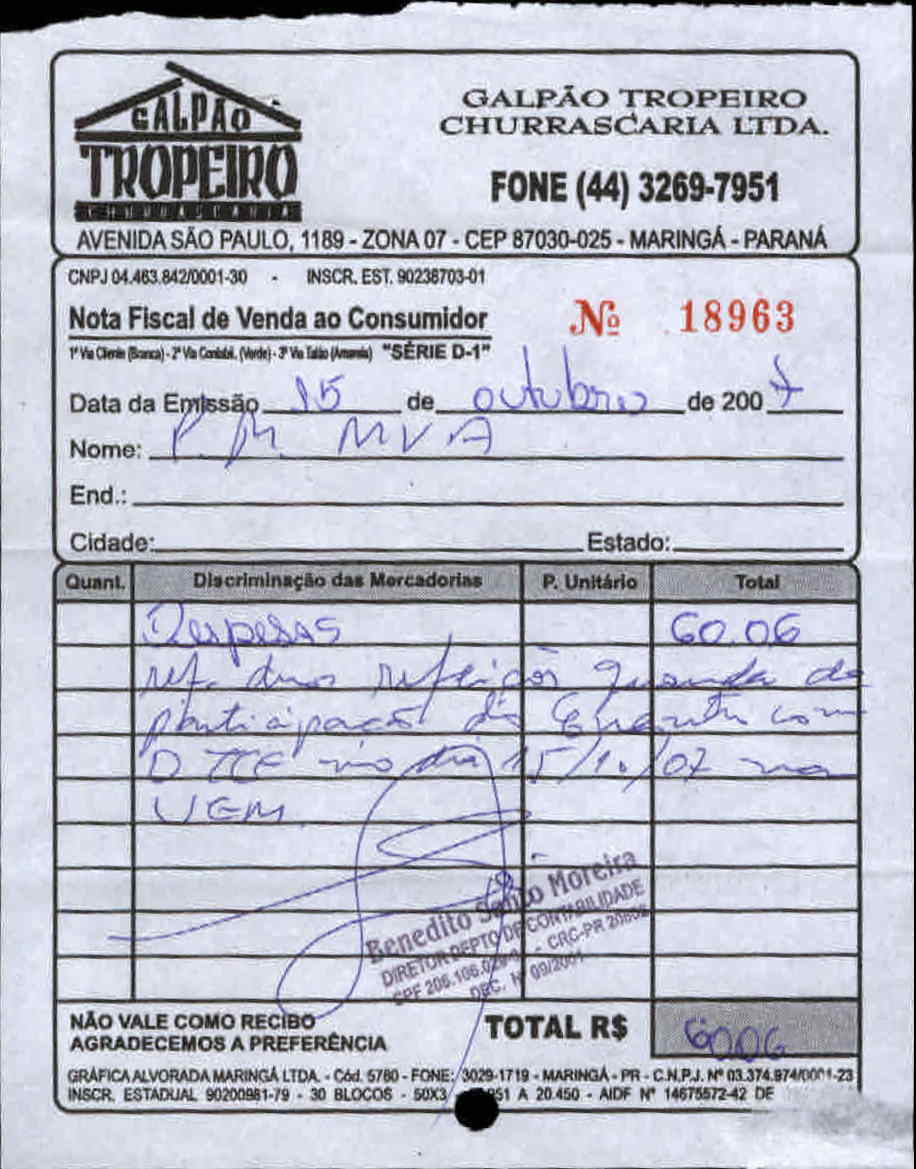 GALPÃO
TROPEIRO
CHURRASCARIA
GALPÃO TROPEIRO
CHURRASCARIA LTDA.
FONE (44) 3269-7951
AVENIDA SÃO PAULO, 1189 - ZONA 07 - CEP 87030-025 - MARINGÁ - PARANÁ
CNPJ 04.463.842/0001-30 - INSCR. EST. 90238703-01
Nota Fiscal de Venda ao Consumidor Nº 18963
1ª Via Cliente (Branca) - 2ª Via Contabil. (Verde) - 3ª Via Talão (Amarela) "SÉRIE D-1"
Data da Emissão 15 de outubro de 2007
Nome: P. M. MVA
End.:
Cidade: Estado:
Quant. Discriminação das Mercadorias P. Unitário Total
Despesas 60.06
ref. duas refeições quando da
participação do Encontro com
O TCE no dia 15/10/07 na
UEM.
Benedito Moreira
DIRETOR DEPTO DE CONTABILIDADE
CPF 206.106. - CRC-PR
DEC. Nº 09/2001
NÃO VALE COMO RECIBO
AGRADECEMOS A PREFERÊNCIA
TOTAL R$ 60.06
GRÁFICA ALVORADA MARINGÁ LTDA. - Cód. 5780 - FONE: 3029-1719 - MARINGÁ - PR - C.N.P.J. Nº 03.374.974/0001-23
INSCR. ESTADUAL 90200981-79 - 30 BLOCOS - 50X3 951 A 20.450 - AIDF Nº 14675572-42 DE